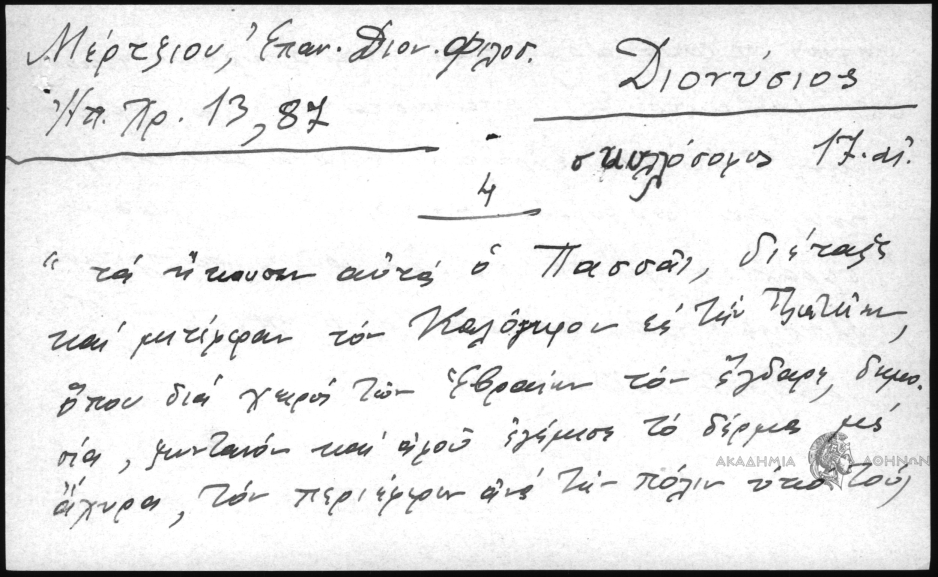 Μέρτζιου, Ἐπαν. Διον. Φιλοσ.
Ἠπ. Χρ. 13, 87
Διονύσιος
σκυλόσοφος 17. αἰ.
4
"τά ἤκουσεν αὐτά ὁ Πασσᾶς, διέταξε
καί μετέφεραν τόν Καλόγηρον εἰς τήν
ὅπου διά χειρός τῶν Ἑβραίων τόν ἔγδαρε, δημο-
σίᾳ, ζωντανόν καί ἀφοῦ ἐγέμισε τό δέρμα μέ
ἄχυρα, τόν περιέφερον ἀνά τήν πόλιν ὑπό τούς
ΑΚΑΔΗΜΙΑ ΑΘΗΝΩΝ